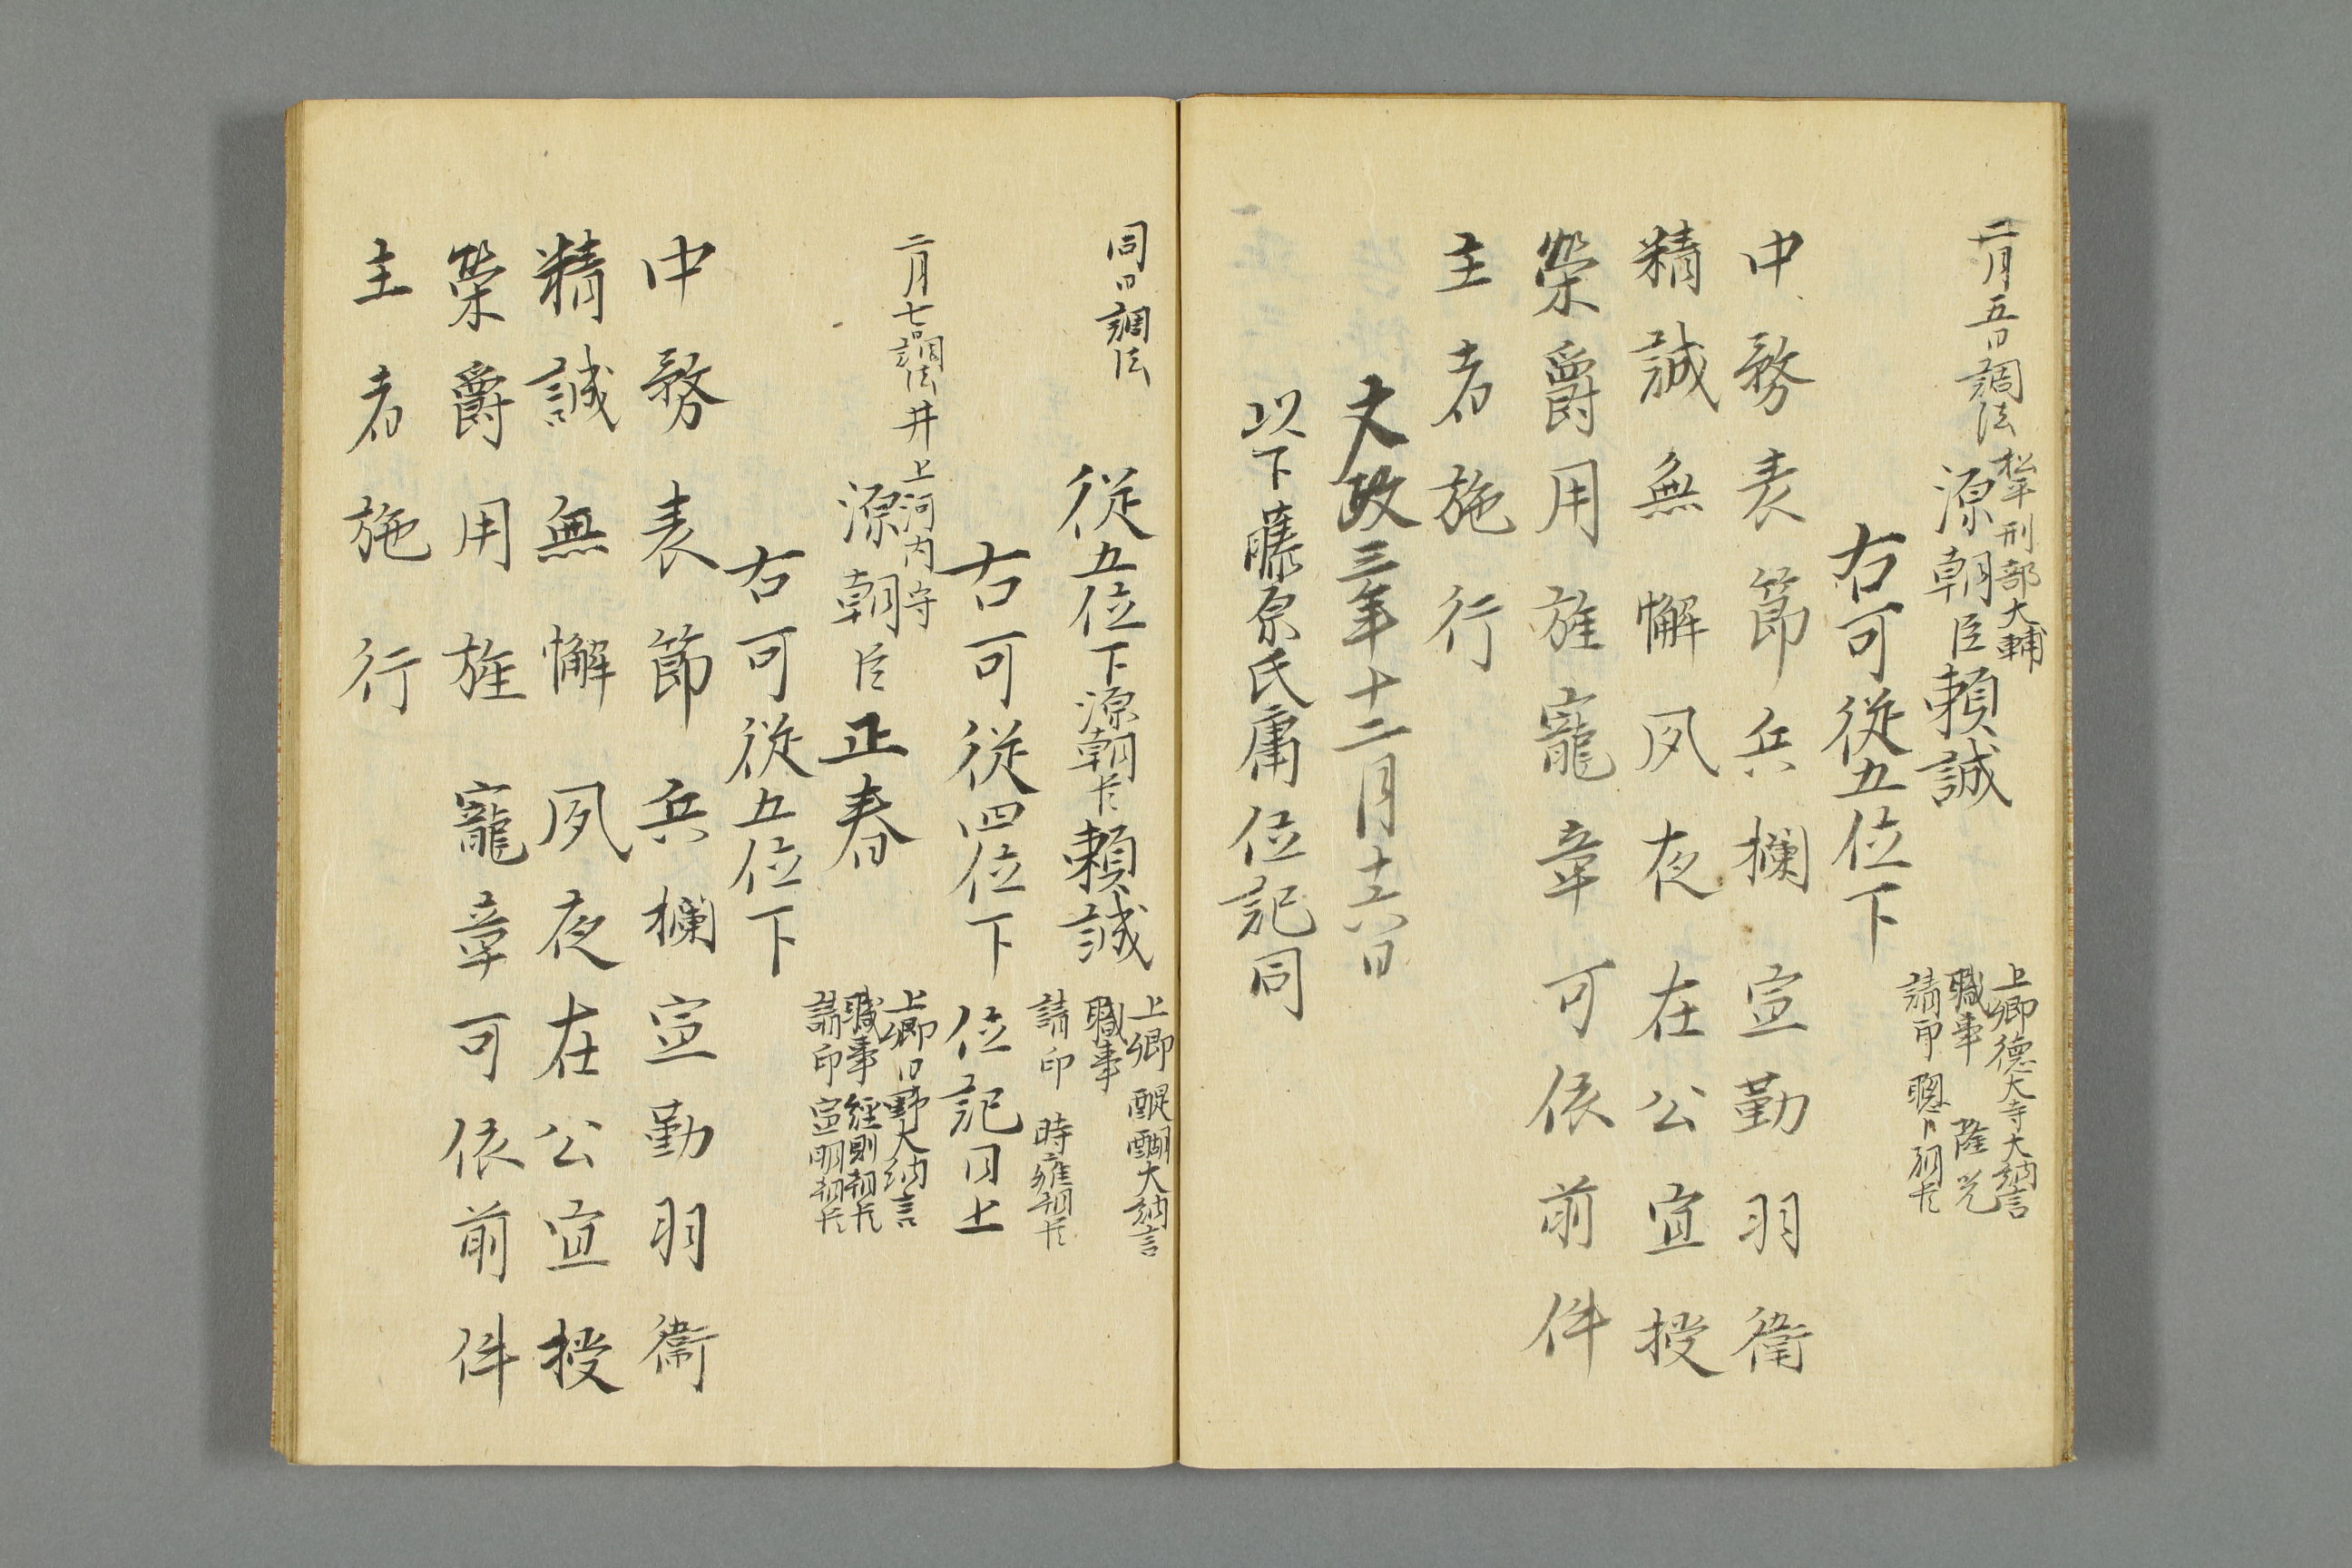 二月五日調法
松平刑部大輔
源朝臣頼誠
上卿徳大寺大納言
職事　隆光
請印　聰長朝臣
右可従五位下
中務表節兵欄宣勤羽衛
精誠無懈夙夜在公宜授
榮爵用旌寵章可依前件
主者施行
文政三年十二月十六日
以下藤原氏庸位記同
同日調法
従五位下源朝臣頼誠
上卿　醍醐大納言
職事
請印　時雍朝臣
右可従四位下　位記同上
二月七日調法　井上河内守
源朝臣正春
上卿日野大納言
職事　經則朝臣
請印　宣明朝臣
右可従五位下
中務表節兵欄宣勤羽衛
精誠無懈夙夜在公宜授
榮爵用旌寵章可依前件
主者施行